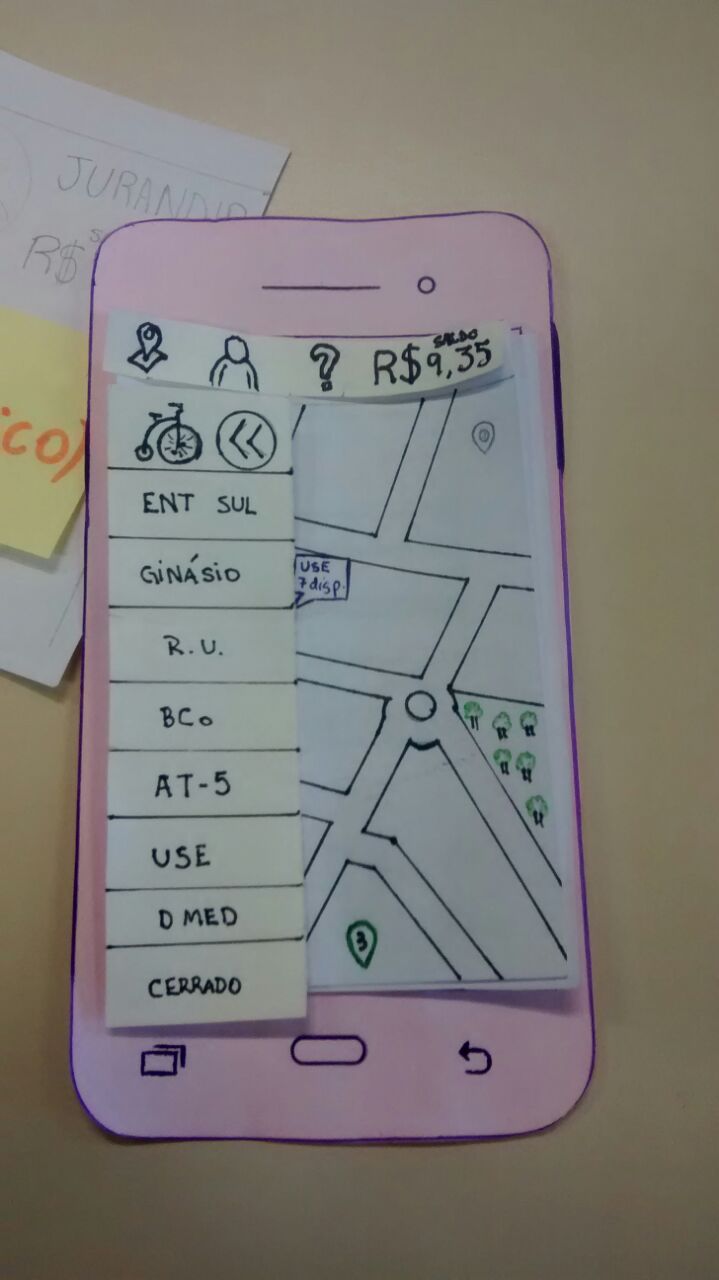 JURANDIR
R$ S
ico)
?
SALDO
R$ 9,35
<<
ENT SUL
GINÁSIO
R.U.
BCo
AT-5
USE
D MED
CERRADO
USE
7 disp.
3